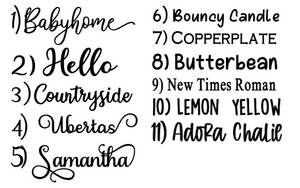 1) Babyhome
2) Hello
3) Countryside
4) Ubertas
5) Samantha
6) Bouncy Candle
7) COPPERPLATE
8) Butterbean
9) New Times Roman
10) LEMON YELLOW
11) AdoRa Chalie